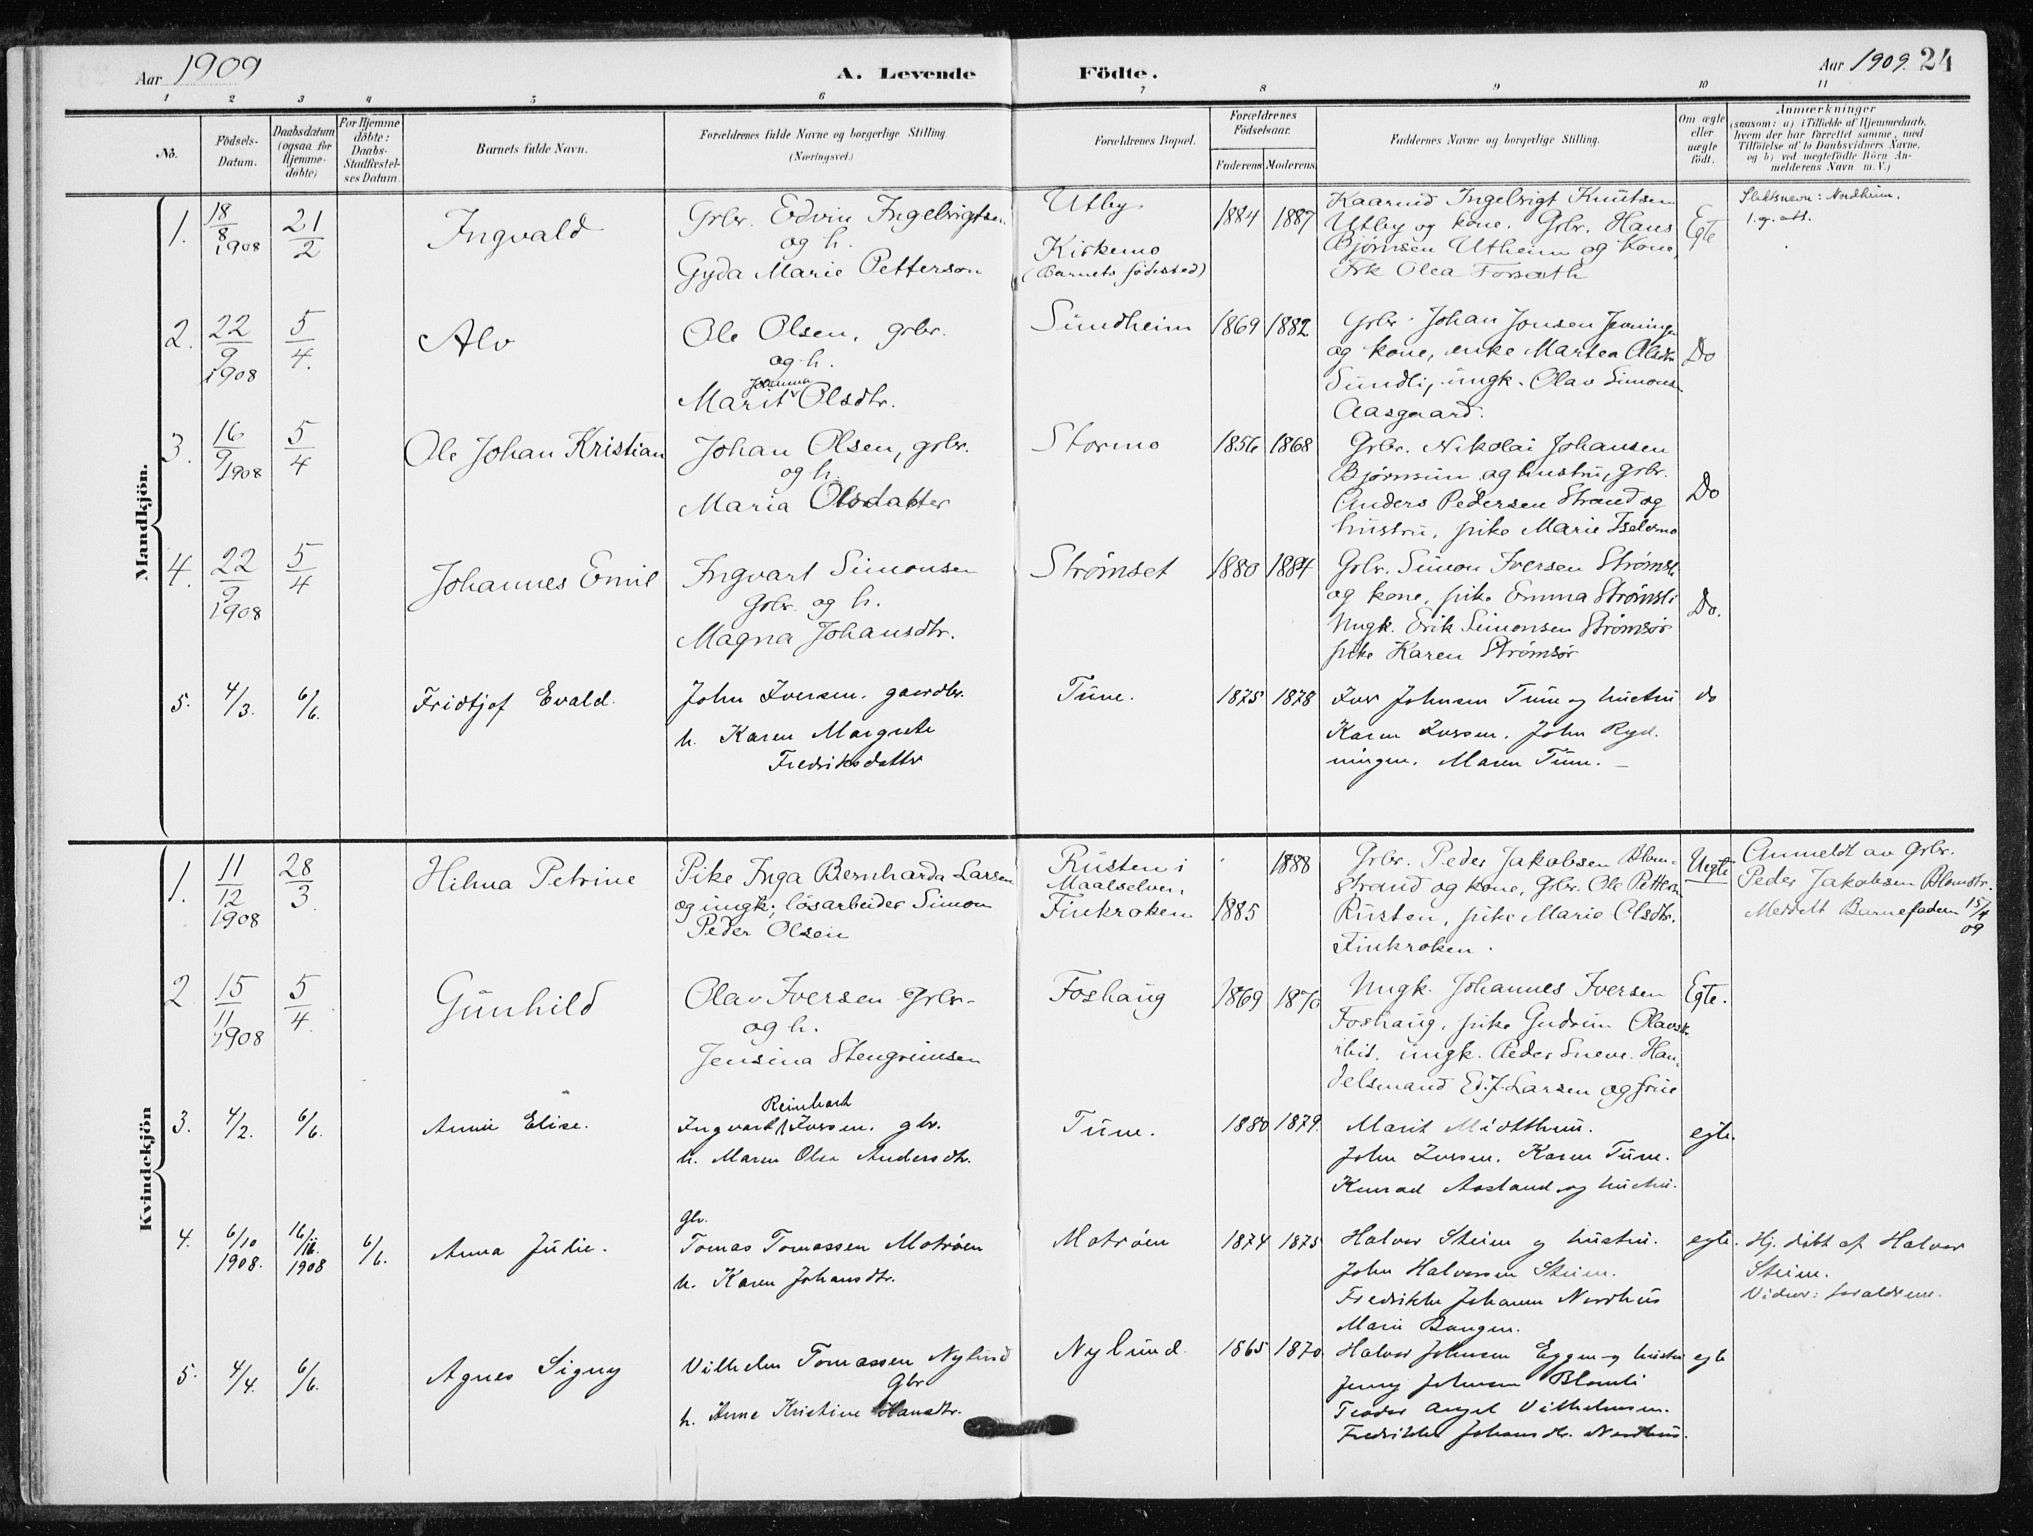 Aar 1909
A. Levende Födte.
Aar 1909. 24
1 2 3 4 5 6 7 8 9 10 11
No.
Födsels-
Datum.
Daabsdatum
(ogsaa for
Hjemme-
döbte)
For Hjemme
döbte:
Daabs-
Stadfæstel-
ses Datum.
Barnets fulde Navn.
Forældrenes fulde Navne og borgerlige Stilling.
(Næringsvei.)
Forældrenes Bopæl.
Forældrenes
Födselsaar.
Faderens Moderens
Faddernes Navne og borgerlige Stilling.
Om ægte
eller
uægte
födt.
Anmærkninger
(saasom: a) i Tilfælde af Hjemmedaab,
hvem der har forrettet samme, med
Tilföielse af to Daabsvidners Navne,
og b) ved uegtefödte Börn An-
melderens Navn m.V.)
Mandkjön.
1.
18/8 1908
21/2
Ingvald
Grbr. Edvin Ingebrigtsen
og h.
Gyda Marie Petterson
Utby
Kirkemo
(Barnets fødested)
1884 1887
Kaarmd Ingebrigt Knutsen
Utby og kone. Grbr. Hans
Bjørnsen Utheim og kone,
Frk Olea Forsæth
Egte
Slektsnevn: Nordheim.
1. g. att.
2.
22/9 1908
5/4.
Alv
Ole Olsen, grbr.
og h.
Johanna
Marit Olsdtr.
Sundheim
1869 1882
Grbr. Johan Jonsen
og kone, enke Martea Olsdtr
Sundli, ungk. Olav Simons
Aasgaard.
Do
3.
16/9 1908
5/4
Ole Johan Kristian
Johan Olsen, grbr.
og h.
Maria Olsdatter
Stormo
1856 1868
Grbr. Nikolai Johansen
Bjørnmun og hustru, grbr.
Anders Pedersen Strand og
hustru, pike Marie Iselvmo
Do
4.
22/9 1908
5/4
Johannes Emil
Ingvart Simonsen
Grbr. og h.
Magna Johansdtr.
Strømset
1880 1884
Grbr. Simon Iversen Strømsli
og kone, pike Emma Strømsli
Ungk. Erik Simonsen Strømsør
pike Karen Strømsør
Do.
5.
4/3.
6/6.
Fridtjof Evald.
John Iversen. gaardbr.
h. Karen Margrete
Fredriksdatter
Tune.
1875 1878
Iver Johnsen Tune og hustru
Karen Iversen. John Ryd-
ningen. Maren Tune. –
do
Kvindekjön
1.
11/12 1908
28/3.
Hilma Petrine
Pike Inga Bernharda Larsen
og ungk; løsarbeider Simon
Peder Olsen
Rusten i
Maalselven,
Finkroken
1885
1888
Grbr. Peder Jakobsen Blom-
strand og kone, Grbr. Ole Petters
Rusten, pike Marie Olsdtr.
Finkroken.
Uegte
Anmeldt av Grbr.
Peder Jakobsen Blomstr.
Meddelt Barnefaderen 15/4 09
2
15/11 1908
5/4.
Gunhild
Olav Iversen Grbr-
og h.
Jensina Stengrimsen
Foshaug
1869 1870
Ungk. Johannes Iversen
Foshaug, pike Gudrun Olavsdr.
ibid, ungk. Peder Sneve. Han-
delsmand Ed. J. Larsen og frue
Egte.
3.
4/2.
6/6.
Annie Elise.
Reinhart
Ingvart Iversen. gbr.
h. Maren Olsa Andersdtr.
Tune.
1880 1879.
Marit Midtthun.
John Iversen. Karen Tune.
Konrad Aasland og hustru.
egte.
4.
6/10 1908.
16/11 1908
6/6.
Anna Julie.
gbr.
Tomas Tomassen Motrøen
h. Karen Johansdtr.
Motrøen
1874 1875
Halvor Steien og hustru.
John Halvorsen Steien.
Fredrikke Johansen Nordhus
Marie Bangen.
egte.
Hj. døbt af Halvor
Steien.
Vidner: foraldrene.
5.
4/4.
6/6.
Agnes Signy
Vilhelm Tomassen Nylund
Gbr
h. Anne Kristine Hansdtr.
Nylund
1865 1870.
Halvor Johnsen Eggen og hustru
Jenny Johnsen Blomli
Teodor Angel Vilhelmsen.
Fredrikke Johansdtr. Nordhus.
egte